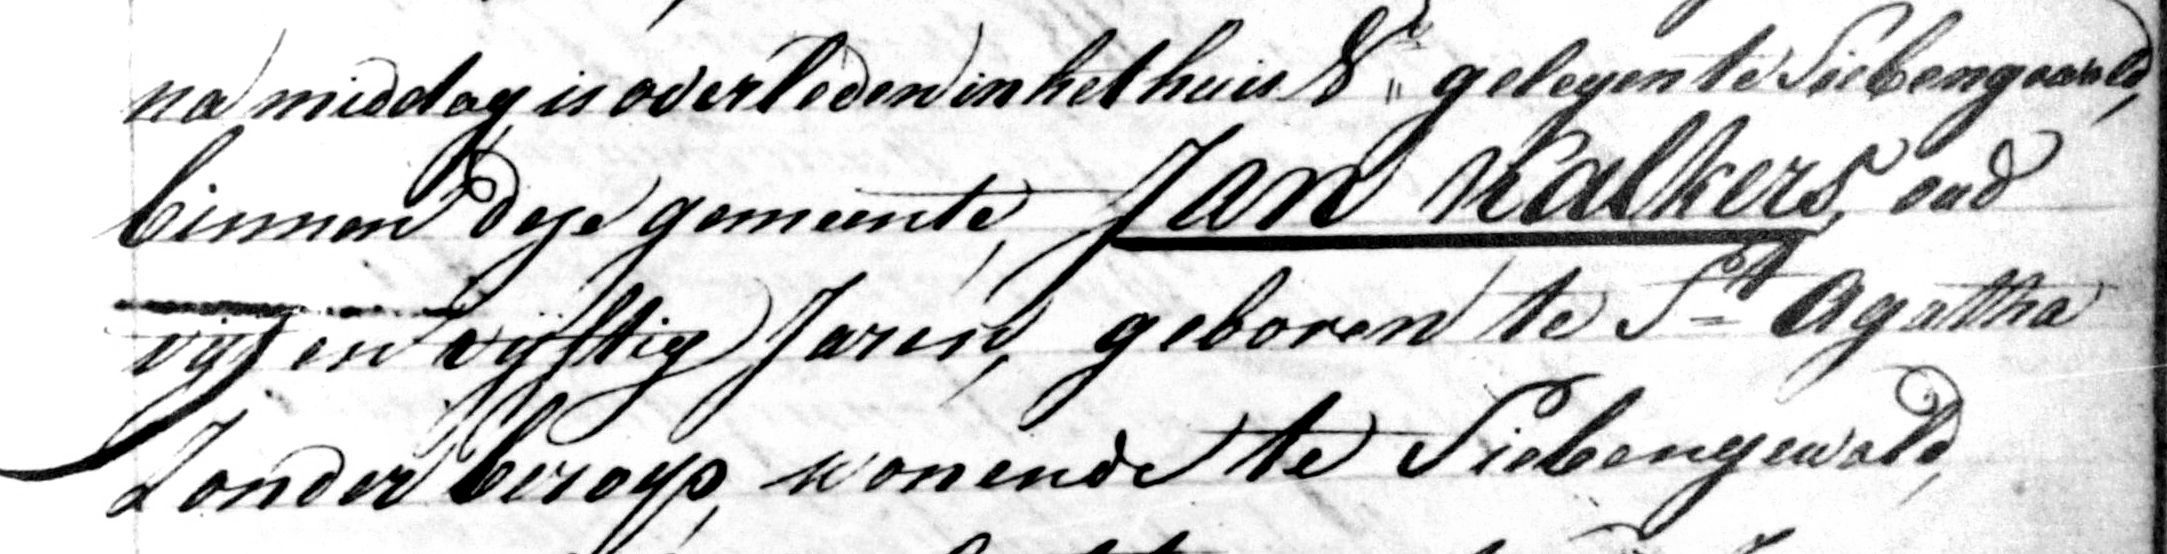 na middag is overleden in het huis N° " gelegen te Siebengewald,
binnen deze gemeente, Jan Kalkers, oud
vijf en vijftig Jaren, geboren te St Agatha
Zonder beroep, wonende te Siebengewald,